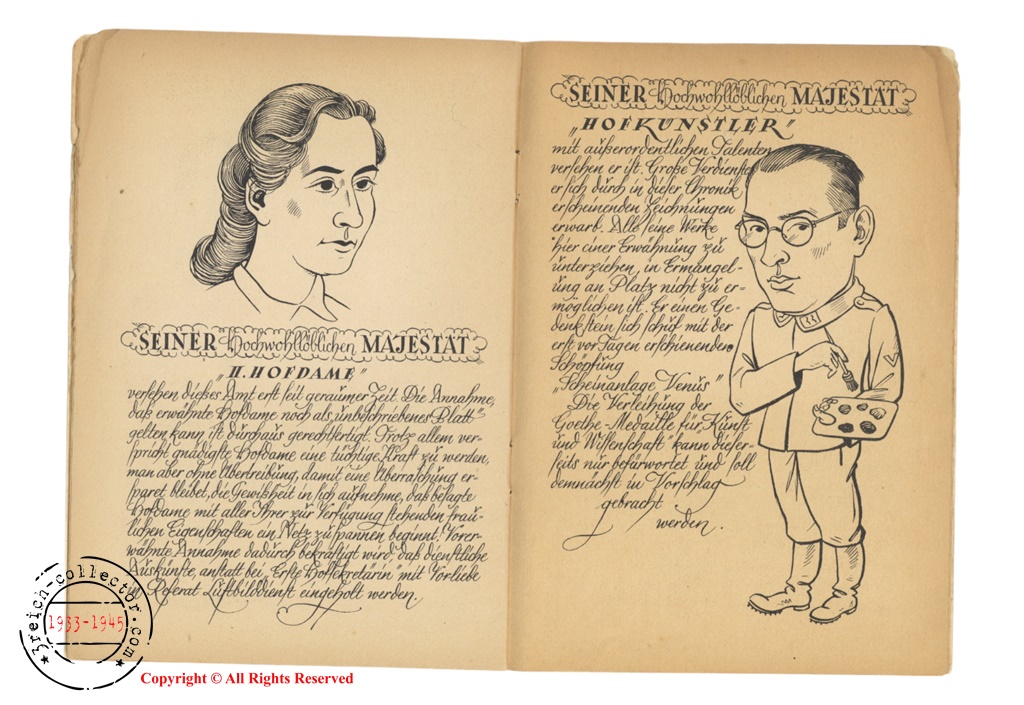 SEINER Hochwohllöblichen MAJESTÄT
„II. HOFDAME"
versehen dießes Amt erst seit geraumer Zeit. Die Annahme,
daß erwähnte Hofdame noch als „unbeschriebenes Blatt"
gelten kann ist durchaus gerechtfertigt. Trotz allem ver-
spricht gnädigste Hofdame eine tüchtige Kraft zu werden,
man aber ohne Übertreibung, damit eine Überraschung er-
sparet bleibet, die Gewißheit in sich aufnehme, daß besagte
Hofdame mit aller Ihrer zur Verfügung stehenden frau-
lichen Eigenschaften ein Netz zu spannen beginnt. Vorer-
wähnte Annahme dadurch bekräftigt wird, daß dienstliche
Auskünfte, anstatt bei „Erste Hofsekretärin" mit Vorliebe
in Referat Luftbilddienst eingeholt werden.
SEINER Hochwohllöblichen MAJESTÄT
„HOFKÜNSTLER"
mit außerordentlichen Talenten
versehen er ist. Große Verdienste
er sich durch in dieser Chronik
erscheinenden Zeichnungen
erwarb. Alle seine Werke
hier einer Erwähnung zu
unterziehen, in Ermangel-
ung an Platz nicht zu er-
möglichen ist. Er einen Ge-
denkstein sich schuf mit der
erst vor Tagen erschienenden
Schöpfung
„Scheinanlage Venus"
Die Verleihung der
Goethe-Medaille für Kunst
und Wissenschaft" kann dieser-
seits nur befürwortet und soll
demnächst in Vorschlag
gebracht
werden.
3reich-collector.com
1933-1945
Copyright © All Rights Reserved